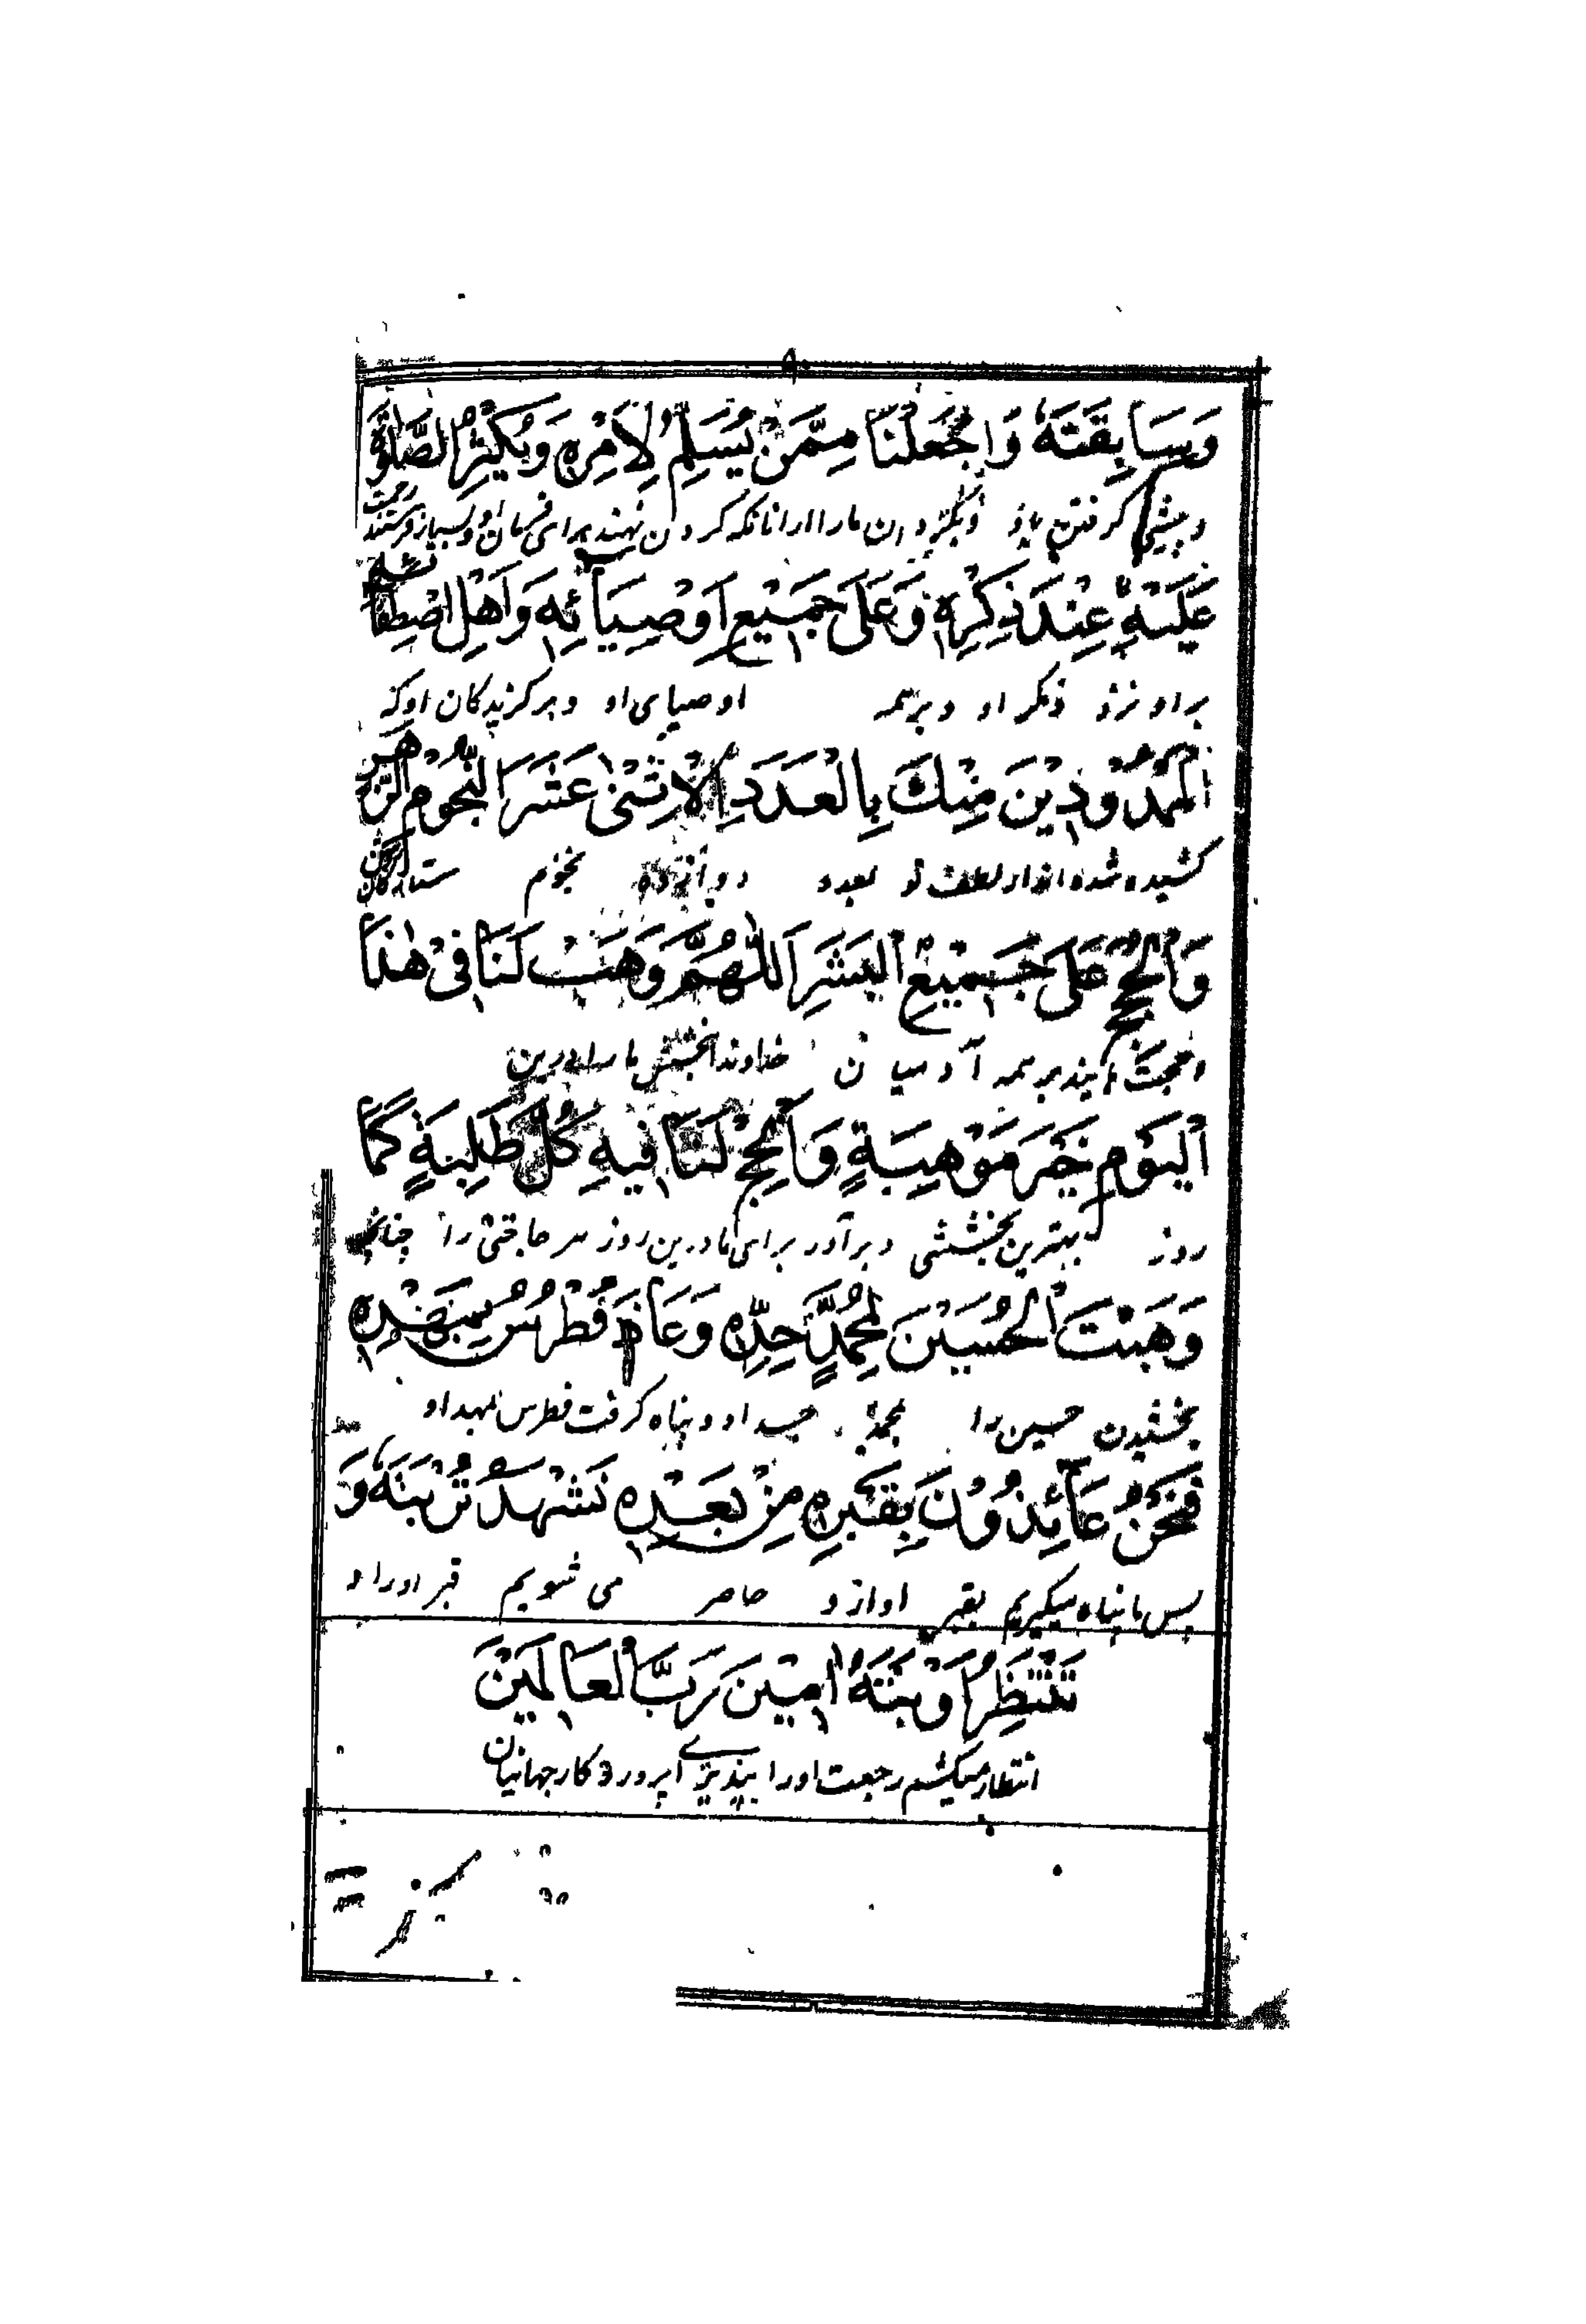 وَسَابِقَتَهُ وَاجْعَلْنَا مِمَّنْ يُسَلِّمُ لِاَمْرِهِ وَيُكْثِرُ الصَّلٰوةَ
و پیشی گرفتن او و بگردان ما را از آنانکه گردن نهند برای فرمان او و بسیار فرستند رحمت
عَلَيْهِ عِنْدَ ذِكْرِهِ وَعَلَى جَمِيْعِ اَوْصِيَائِهِ وَاَهْلِ اصْطِفَائِهِ
بر او نزد ذکر او و بر همه اوصیای او و برگزیدگان او که
الْمَمْدُوْدِيْنَ مِنْكَ بِالْعَدَدِ الْاِثْنٰى عَشَرَ النُّجُوْمِ الزُّهَرِ
کشیده شده اند از لطف تو بعدد دوازده نجوم ستارگان روشن
وَالْحُجَجِ عَلَى جَمِيْعِ الْبَشَرِ اَللّٰهُمَّ وَهَبْ لَنَا فِىْ هٰذَا
و حجت آیند بر همه آدمیان خداوندا ببخش ما را در این
الْيَوْمِ خَيْرَ مَوْهِبَةٍ وَاَنْجِحْ لَنَا فِيهِ كُلَّ طَلِبَةٍ كَمَا
روز بهترین بخششی و برآور برای ما درین روز هر حاجتی را چنانچه
وَهَبْتَ الْحُسَيْنَ لِمُحَمَّدٍ جَدِّهِ وَعَاذَ فُطْرُسُ بِمَهْدِهِ
بخشیدن حسین را بمحمد جد او و پناه گرفت فطرس بمهد او
فَنَحْنُ عَائِذُوْنَ بِقَبْرِهِ مِنْ بَعْدِهِ نَشْهَدُ تُرْبَتَهُ وَ
پس ما پناه میگیریم بقبر او از و حاضر می شویم قبر او را و
نَنْتَظِرُ اَوْبَتَهُ اٰمِيْنَ رَبَّ الْعَالَمِيْنَ
انتظار میکشم رجعت او را بپذیر ای پروردگار جهانیان